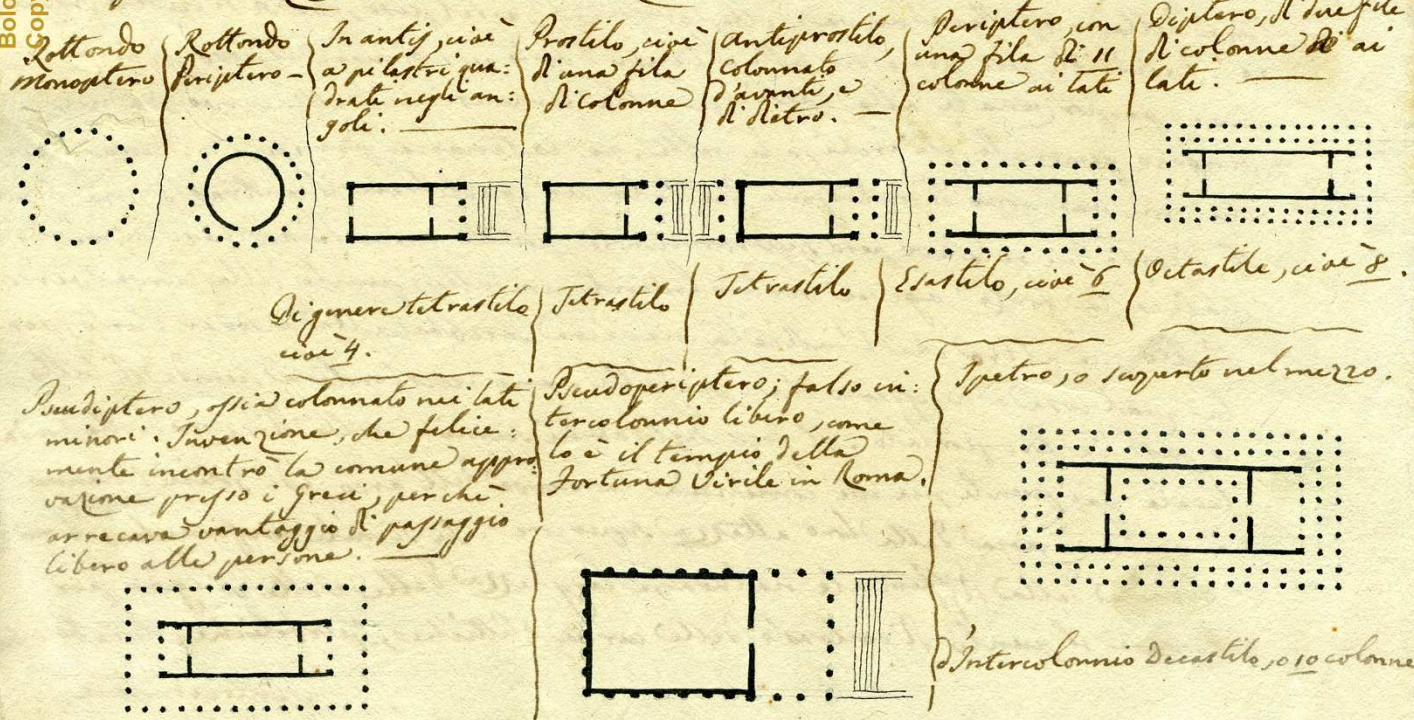 Bolo
Copy
Rottondo
Monoptero
Rottondo
Periptero –
In antis, cioè
a pilastri qua:
drati negli an:
goli.
Prostilo, cioè
di una fila
di colonne
Antiprostilo,
colonnato
d'avanti, e
di dietro. —
Periptero, con
una fila di 11
colonne ai lati
Diptero, di due file
di colonne ai
lati.
Di genere tetrastilo
cioè 4.
Tetrastilo
Tetrastilo
Esastilo, cioè 6
Octastile, cioè 8.
Pseudiptero, ossia colonnato nei lati
minori. Invenzione, che felice:
mente incontrò la comune appro
vazione presso i Greci, perchè
arrecava vantaggio di passaggio
libero alle persone.
Pseudoperiptero; falso in:
tercolonnio libero, come
lo è il tempio della
Fortuna Virile in Roma.
Ipetro, o scoperto nel mezzo.
d'Intercolonnio Decastilo, o 10 colonne